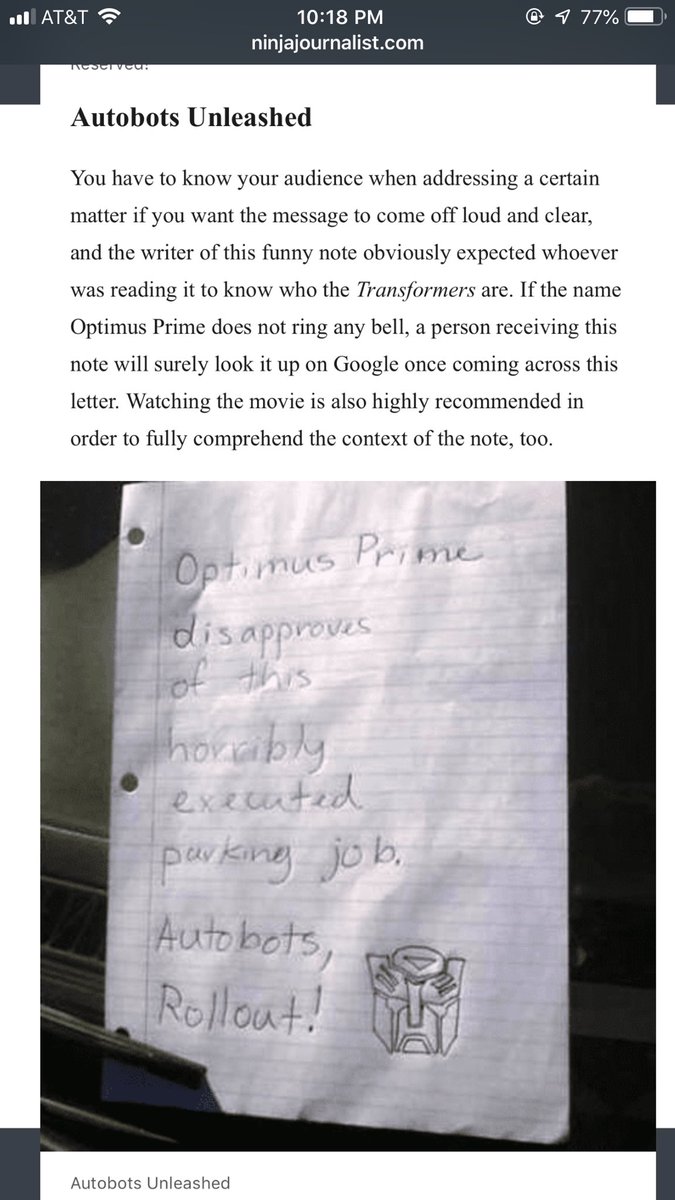 AT&T 10:18 PM 77%
ninjajournalist.com
Reserved!
Autobots Unleashed
You have to know your audience when addressing a certain
matter if you want the message to come off loud and clear,
and the writer of this funny note obviously expected whoever
was reading it to know who the Transformers are. If the name
Optimus Prime does not ring any bell, a person receiving this
note will surely look it up on Google once coming across this
letter. Watching the movie is also highly recommended in
order to fully comprehend the context of the note, too.
Optimus Prime
disapproves
of this
horribly
executed
parking job.
Autobots,
Rollout!
Autobots Unleashed